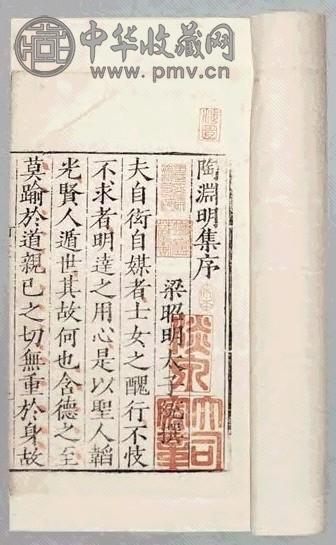 中华收藏网
www.pmv.cn
陶淵明集序
梁昭明太子統撰
夫自衒自媒者士女之醜行不忮
不求者明達之用心是以聖人韜
光賢人遁世其故何也含德之至
莫踰於道親已之切無重於身故